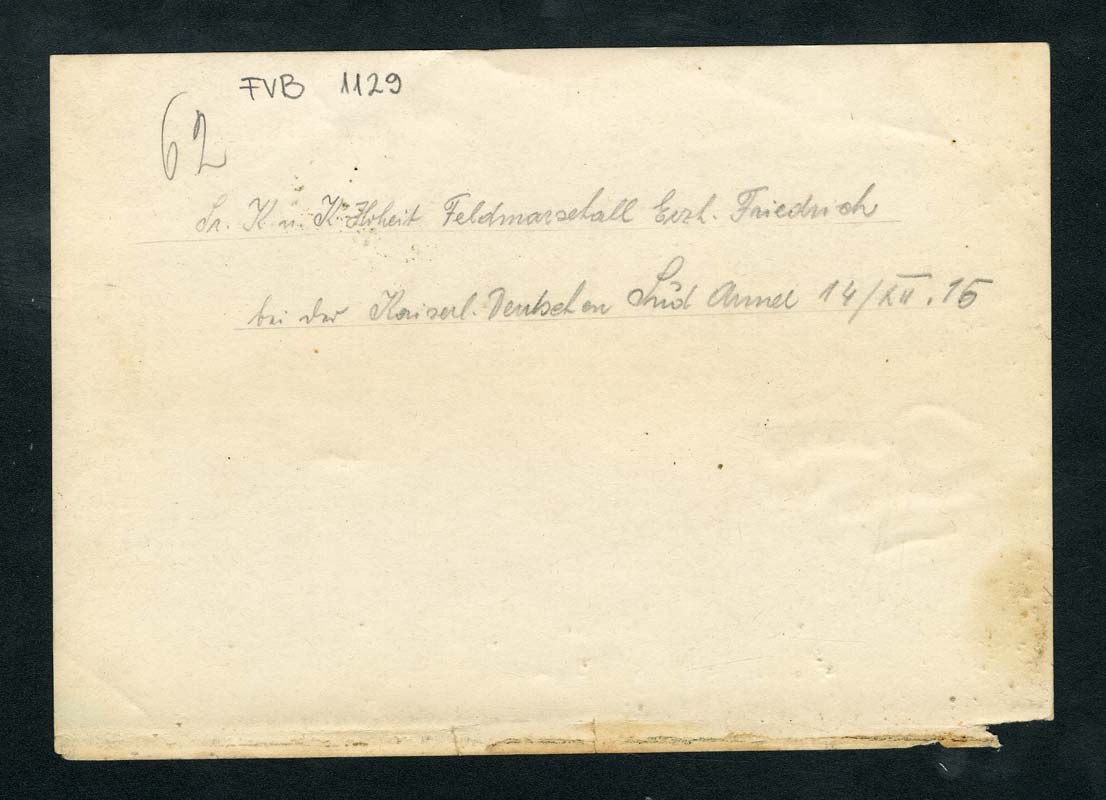 FVB 1129
62
Sr. K. u. K. Hoheit Feldmarschall Erzh. Friedrich
bei der Kaiserl. Deutschen Süd Armee 14/XII.15